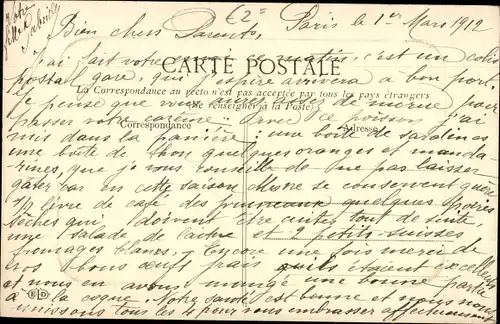 Votre fille Gabrielle
£2=
Paris le 1er Mars 1912
Bien chers Parents,
J'ai fait votre c'est un colis
CARTE POSTALE
postal gare, qui j'espère arrivera à bon port.
La Correspondance au recto n'est pas acceptée par tous les pays étrangers
Je pense que vous de morue pour
(Se renseigner à la Poste)
passer votre carême. Avec ce poisson j'ai
Correspondance
Adresse
mis dans la panière : une boîte de sardines
une boîte de thon quelques oranges et manda
rines, que je vous conseille de ne pas laisser
gâter car en cette saison elles ne se conservent guère
1/2 livre de café des pruneaux quelques poires
sèches qui doivent être cuites tout de suite,
une salade de laitue et 2 petits suisses
fromages blancs. Encore une fois merci de
vos bons œufs frais qu'ils étaient excellents
et nous en avons mangé une bonne partie
à la coque. Notre santé est bonne et nous nous
ED
unissons tous les 4 pour vous embrasser affectueusement